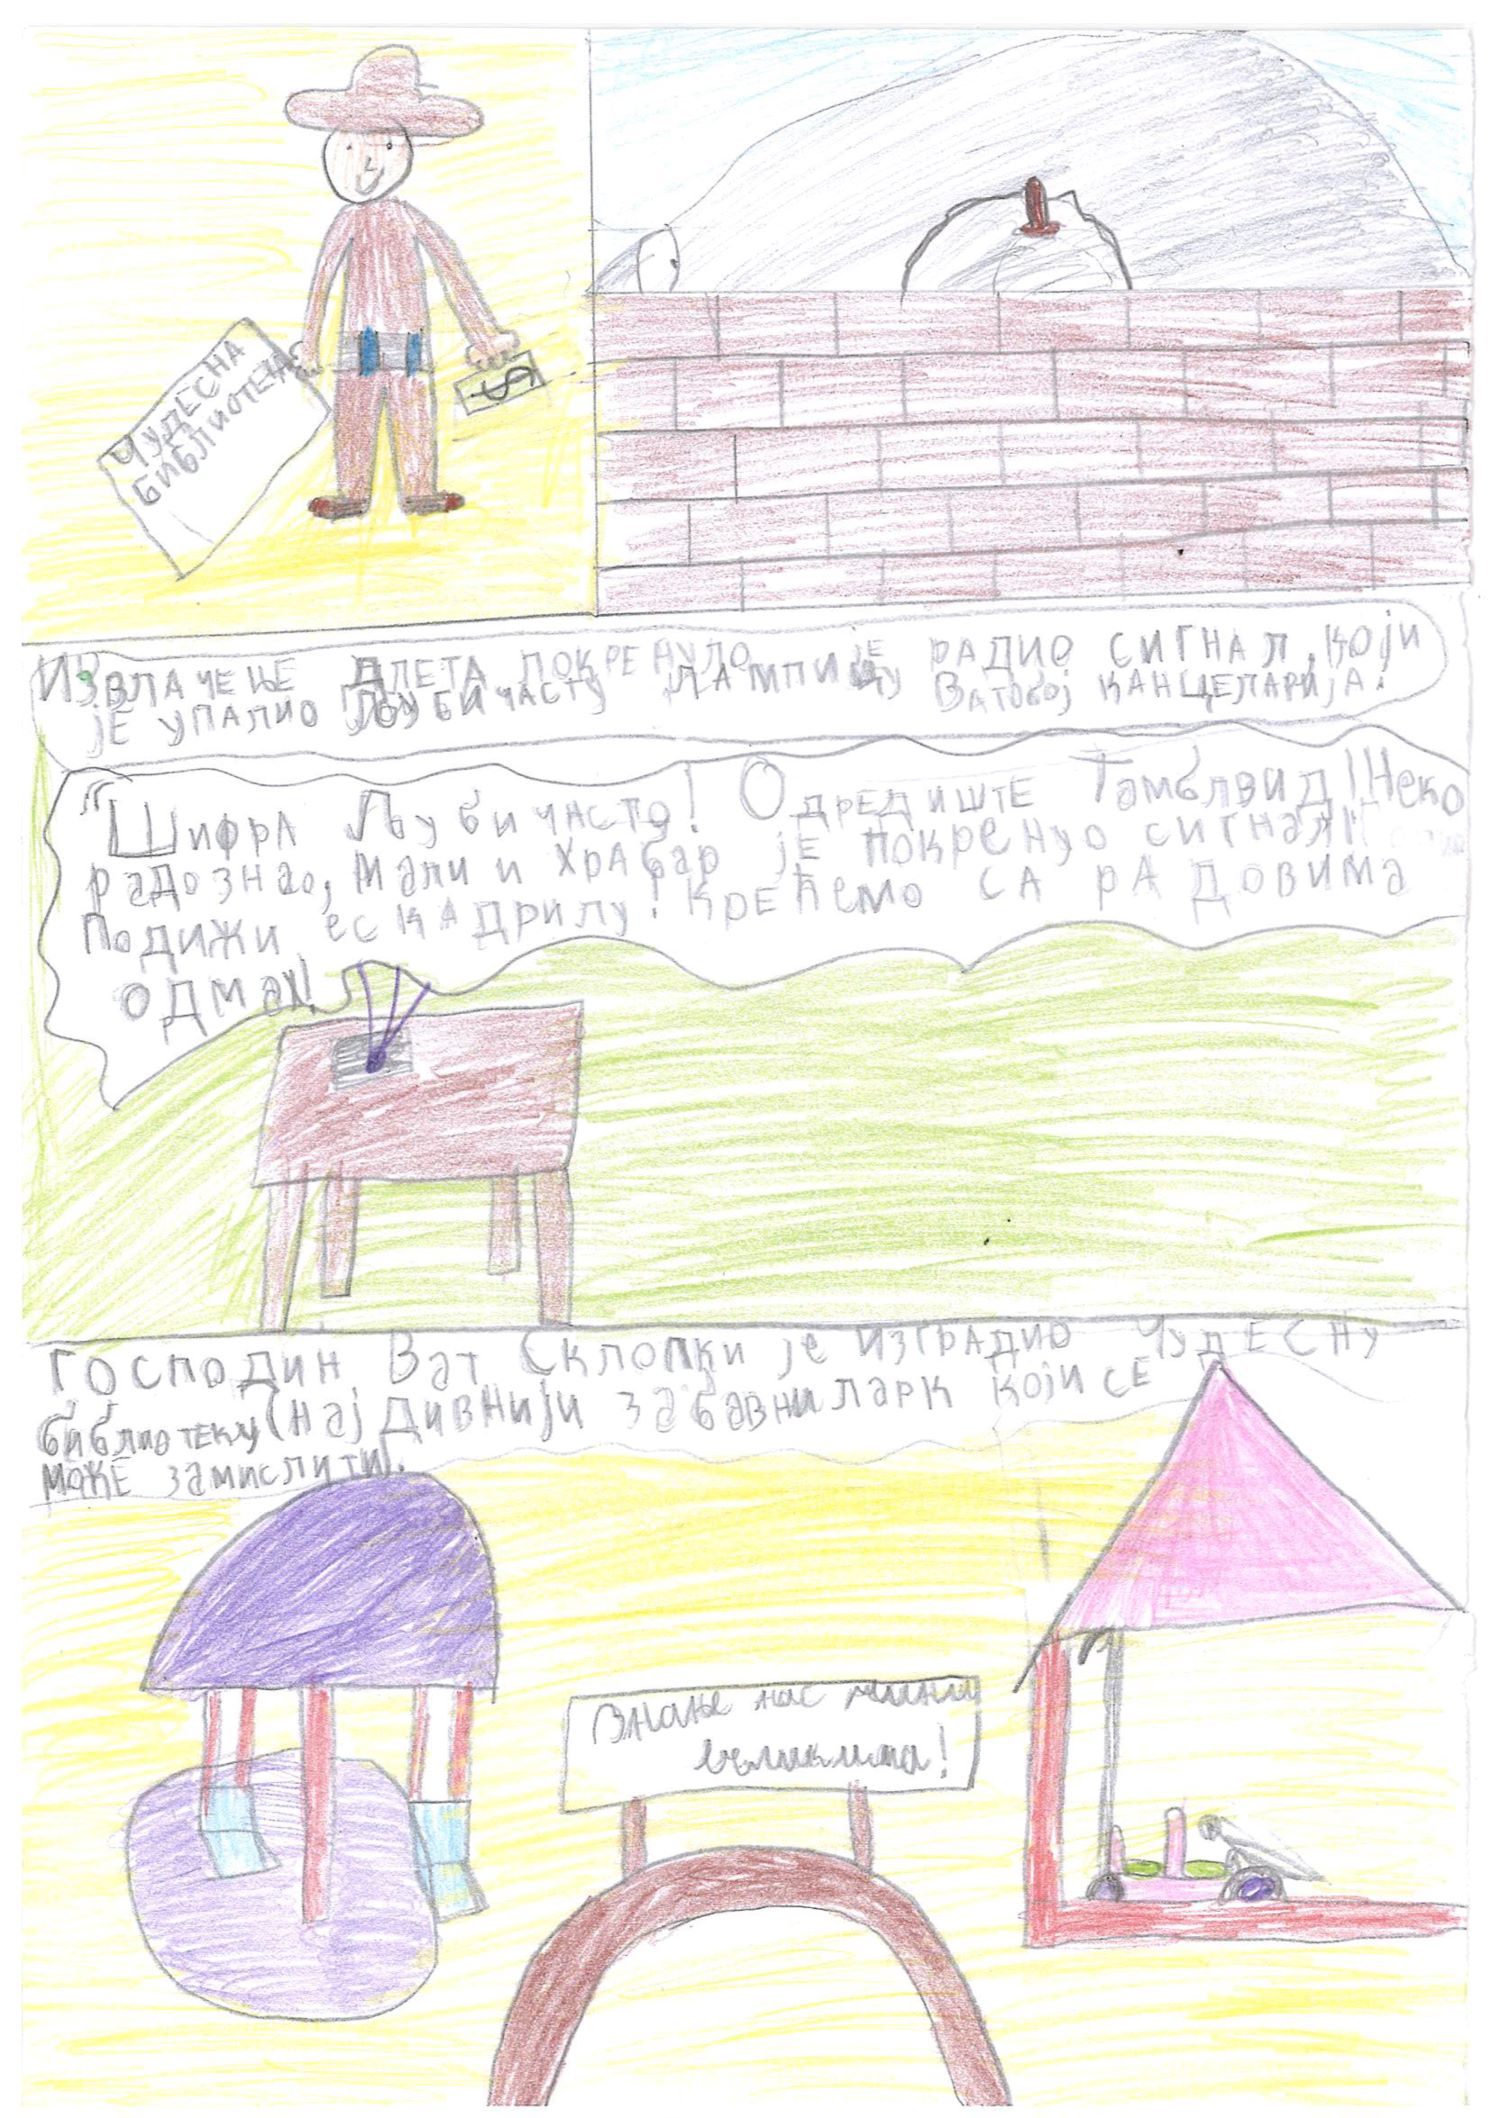 ЧУДЕСНА
БИБЛИОТЕКА
$
ИЗВЛАЧЕЊЕ ДЛЕТА ПОКРЕНУЛО ЈЕ РАДИО СИГНАЛ, КОЈИ
ЈЕ УПАЛИО ЉУБИЧАСТУ ЛАМПИЦУ ВАТОВОЈ КАНЦЕЛАРИЈА.
"ШИФРА ЉУБИЧАСТО! ОДРЕДИШТЕ ТАМБЛВИД! НЕКО
РАДОЗНАО, МАЛИ И ХРАБАР ЈЕ ПОКРЕНУО СИГНАЛ!
ПОДИЖИ ЕСКАДРИЛУ! КРЕЋЕМО СА РАДОВИМА
ОДМАХ!
ГОСПОДИН ВАТ СКЛОПКИ ЈЕ ИЗГРАДИО ЧУДЕСНУ
БИБЛИОТЕКУ (НАЈДИВНИЈИ ЗАБАВНИ ПАРК КОЈИ СЕ
МОЖЕ ЗАМИСЛИТИ.
Знање нас чини
великима!